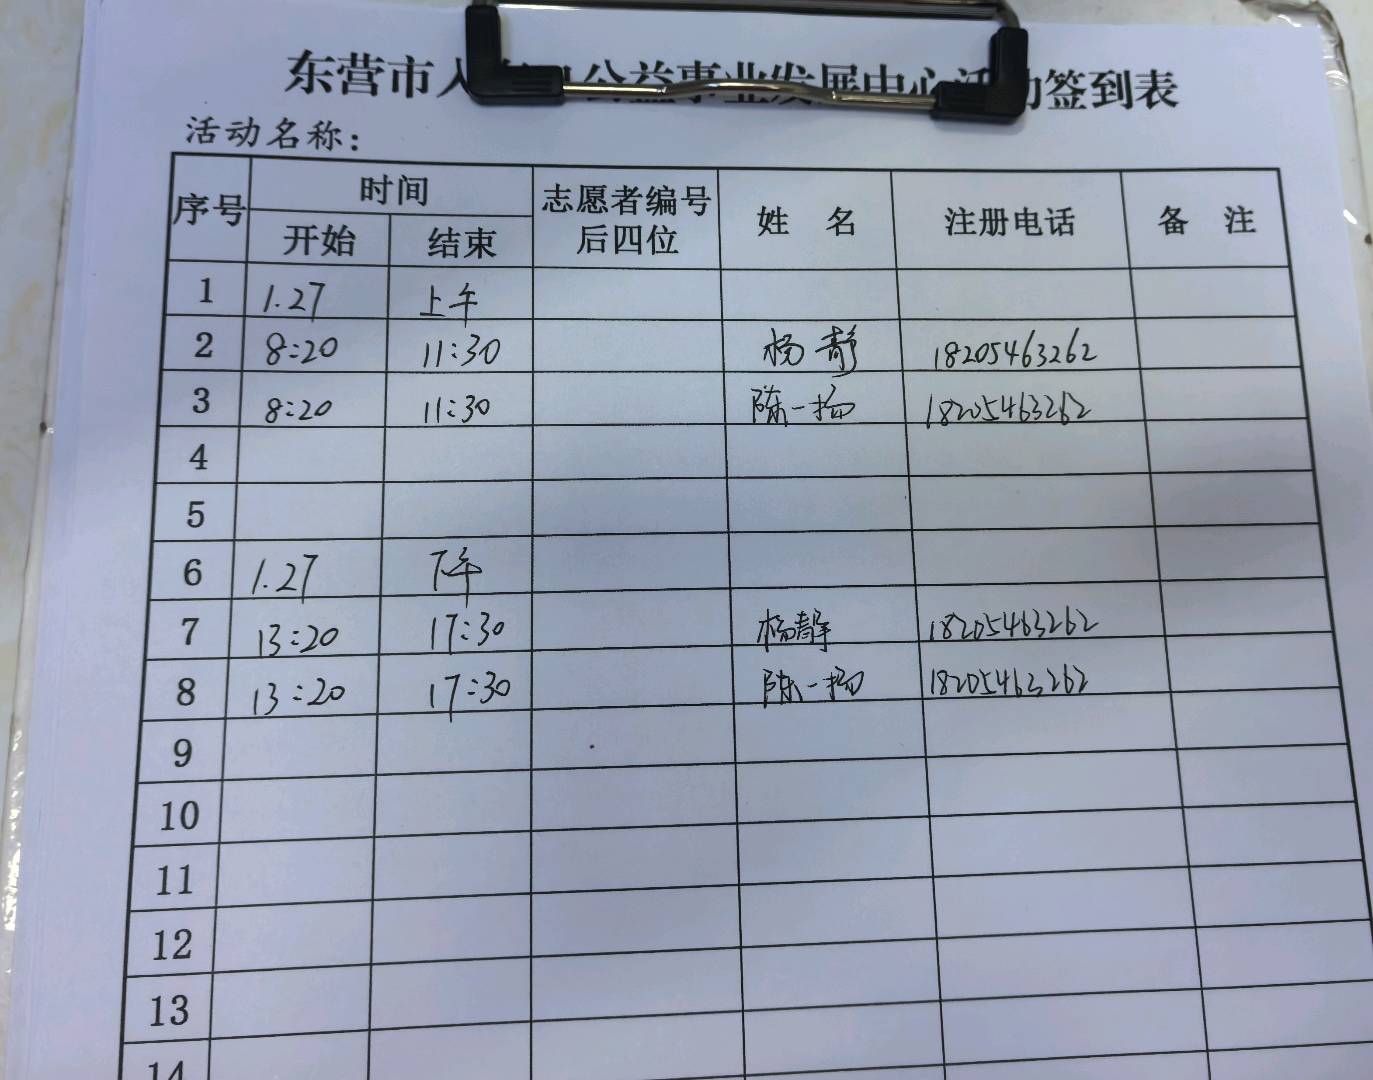 东营市人 公益事业发展中心活动签到表
活动名称：
序号 时间 志愿者编号后四位 姓 名 注册电话 备 注
开始 结束
1 1.27 上午
2 8:20 11:30 杨静 18205463262
3 8:20 11:30 陈一扬 18205463262
4
5
6 1.27 下午
7 13:20 17:30 杨静 18205463262
8 13:20 17:30 陈一扬 18205463262
9
10
11
12
13
14